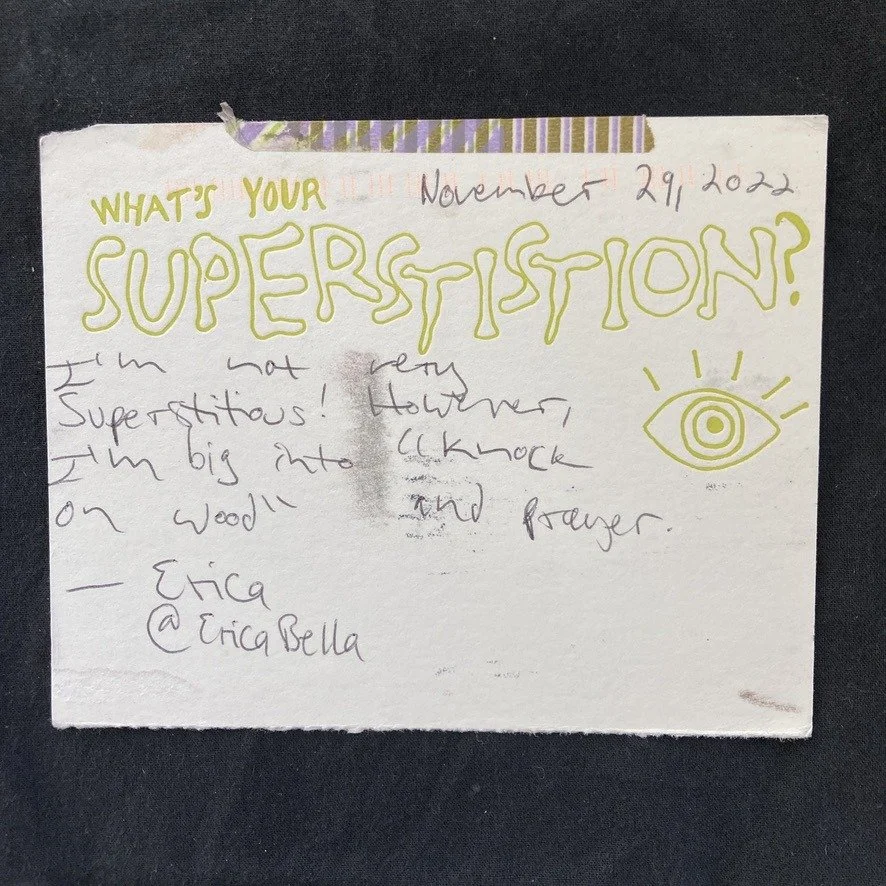 WHAT'S YOUR November 29, 2022
SUPERSTISTION?
I'm not very
Superstitious! However,
I'm big into "Knock
on wood" and prayer.
— Erica
@EricaBella